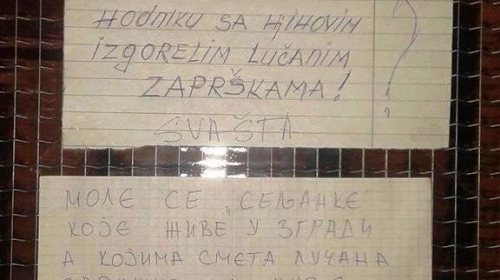 HODNIKU SA NJIHOVIM
IZGORELIM LUČANIM
ZAPRŠKAMA!
SVAŠTA
?
МОЛЕ СЕ „СЕЉАНКЕ"
КОЈЕ ЖИВЕ У ЗГРАДИ
А КОЈИМА СМЕТА ЛУЧАНА